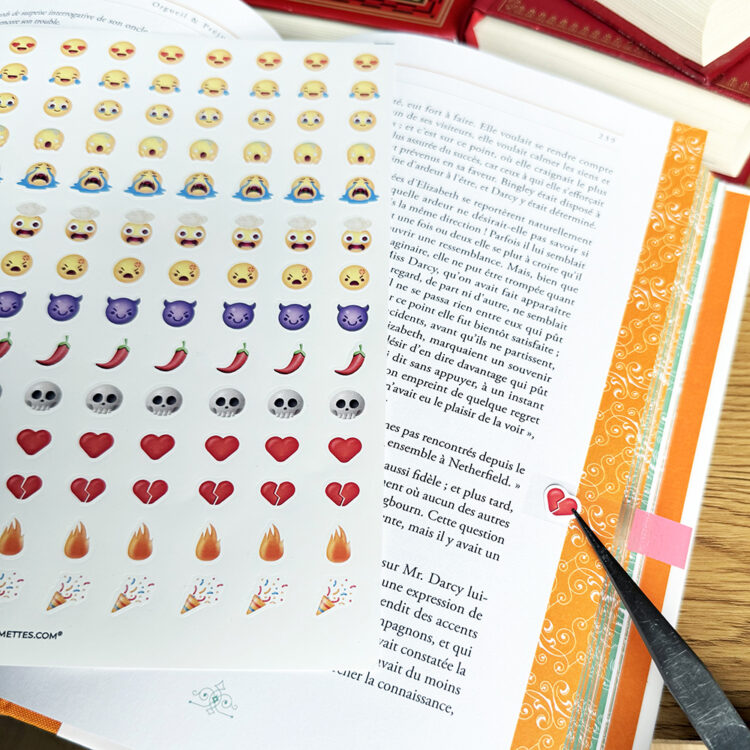 nds de surprise interrogative de son oncle
encore son trouble.
Orgueil & Préju
239
té, eut fort à faire. Elle voulait se rendre compte
un de ses visiteurs, elle voulait calmer les siens et
; et c'est sur ce point, où elle craignait le plus
lus assurée du succès, car ceux à qui elle s'efforçait
prévenus en sa faveur. Bingley était disposé à
ine d'ardeur à l'être, et Darcy y était déterminé.
ées d'Elizabeth se reportèrent naturellement
quelle ardeur ne désirait-elle pas savoir si
s la même direction ! Parfois il lui semblait
t une fois ou deux elle se plut à croire qu'il
ouvrir une ressemblance. Mais, bien que
aginaire, elle ne put être trompée quant
Miss Darcy, qu'on avait fait apparaître
regard, de part ni d'autre, ne semblait
l ne se passa rien entre eux qui pût
r ce point elle fut bientôt satisfaite ;
cidents, avant qu'ils ne partissent,
izabeth, marquaient un souvenir
désir d'en dire davantage qui pût
dit sans appuyer, à un instant
on empreint de quelque regret
n'avait eu le plaisir de la voir »,
mes pas rencontrés depuis le
ensemble à Netherfield. »
aussi fidèle ; et plus tard,
ent où aucun des autres
gbourn. Cette question
ente, mais il y avait un
sur Mr. Darcy lui-
une expression de
endit des accents
mpagnons, et qui
vait constatée la
avait du moins
cher la connaissance,
METTES.COM®